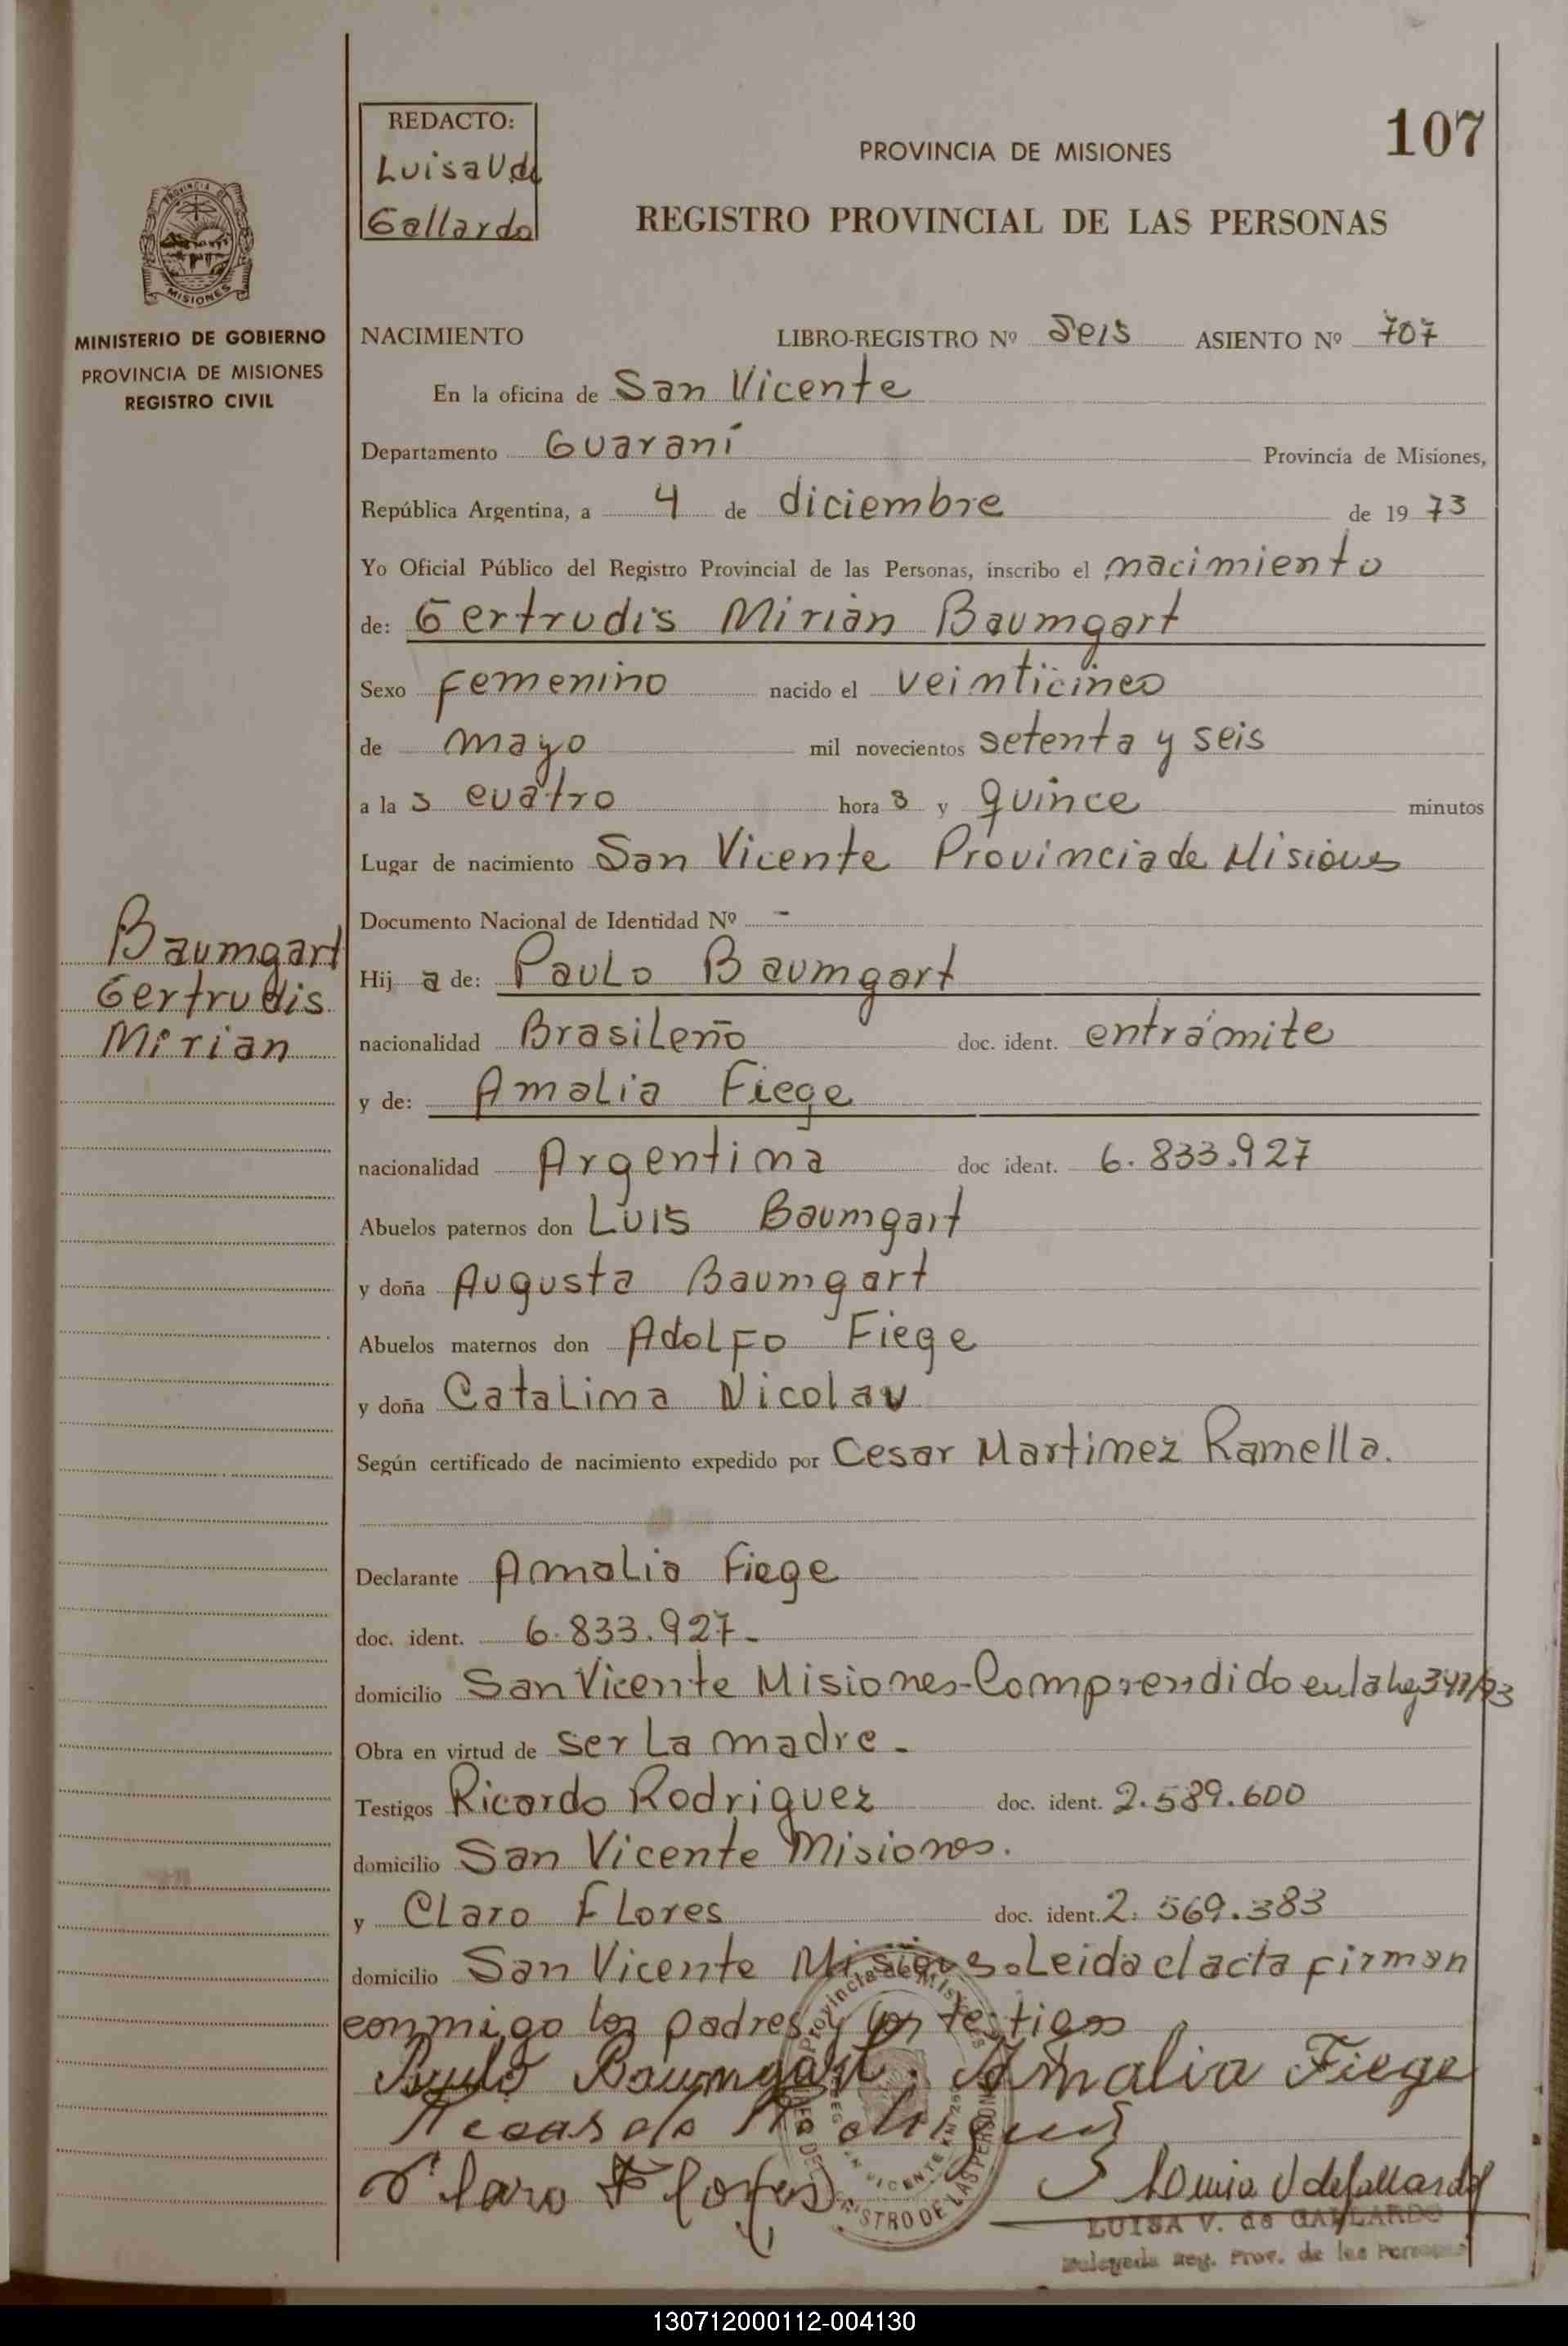 107
REDACTO:
Luisa V. de
Gallardo
PROVINCIA DE MISIONES
REGISTRO PROVINCIAL DE LAS PERSONAS
MISIONES
MINISTERIO DE GOBIERNO
PROVINCIA DE MISIONES
REGISTRO CIVIL
NACIMIENTO LIBRO-REGISTRO Nº Seis ASIENTO Nº 707
En la oficina de San Vicente
Departamento Guaraní Provincia de Misiones,
República Argentina, a 4 de diciembre de 19 73
Yo Oficial Público del Registro Provincial de las Personas, inscribo el nacimiento
de: Gertrudis Mirian Baumgart
Sexo femenino nacido el veinticinco
de mayo mil novecientos setenta y seis
a la s cuatro hora s y quince minutos
Lugar de nacimiento San Vicente Provincia de Misiones
Documento Nacional de Identidad Nº -
Baumgart
Gertrudis
Mirian
Hij a de: Paulo Baumgart
nacionalidad Brasileño doc. ident. entrámite
y de: Amalia Fiege
nacionalidad Argentina doc ident. 6.833.927
Abuelos paternos don Luis Baumgart
y doña Augusta Baumgart
Abuelos maternos don Adolfo Fiege
y doña Catalina Nicolau
Según certificado de nacimiento expedido por Cesar Martinez Ramella.
Declarante Amalia Fiege
doc. ident. 6.833.927-
domicilio San Vicente Misiones-Comprendido en la
Obra en virtud de ser la madre-
Testigos Ricardo Rodriguez doc. ident. 2.589.600
domicilio San Vicente Misiones.
y Claro Flores doc. ident. 2.569.383
domicilio San Vicente Misiones. Leida el acta firman
conmigo los padres y los testigos
Paulo Baumgart. Amalia Fiege
Claro Flores Luisa V de Gallardo
LUISA V. de GALLARDO
Delegada Reg. Prov. de las Personas
130712000112-004130